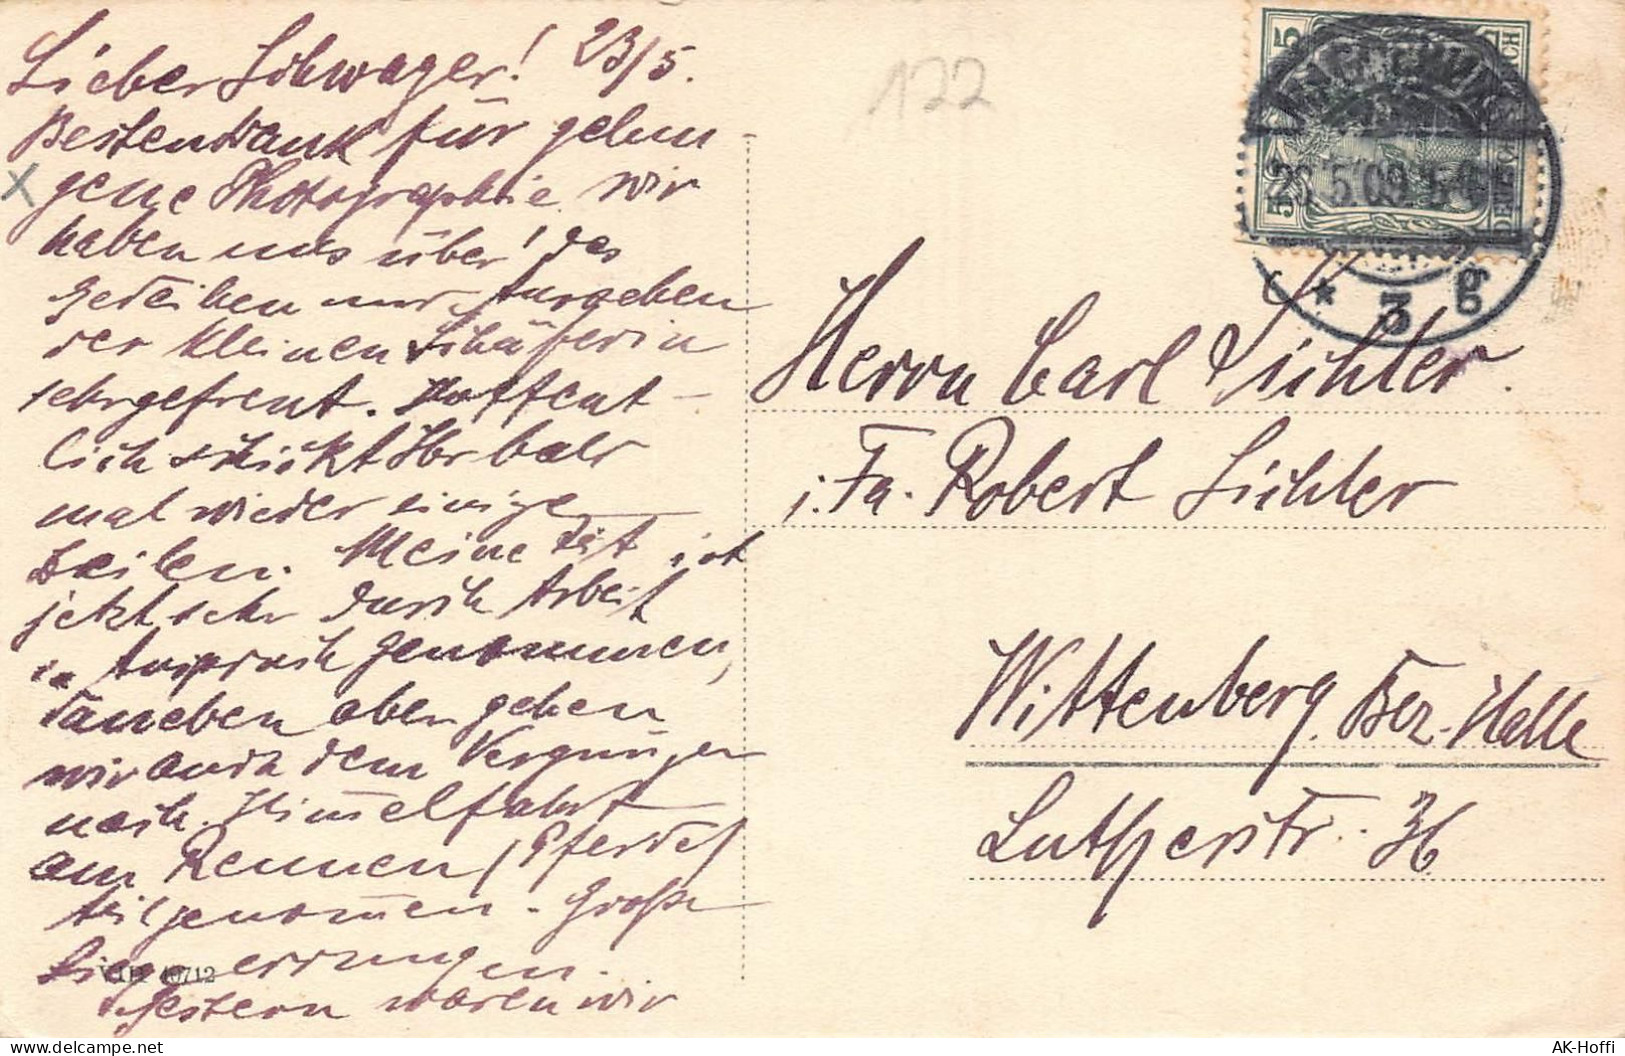 Lieber Schwager! 23/5.
Besten Dank für gelun-
gene Photographie wir
haben uns über! das
Gedeihen und Ausgehen
der kleinen Schäferin
sehr gefreut. Hoffent-
lich schickt Ihr bald
mal wieder einige
Zeilen. Meine Zeit ist
jetzt sehr durch Arbeit
in Anspruch genommen,
daneben aber gehen
wir auch dem Vergnügen
nach. Himmelfahrt
am Rennen (Pferde)
teilgenommen. Große
errungen.
Gestern waren wir
122
Herrn Carl Lichter.
i. Fa. Robert Lichter
Wittenberg Bez. Halle
Lutherstr. 36
5
5
23.5.09.
* 3 g
10712
AK-Hoffi
http://www.delcampe.net